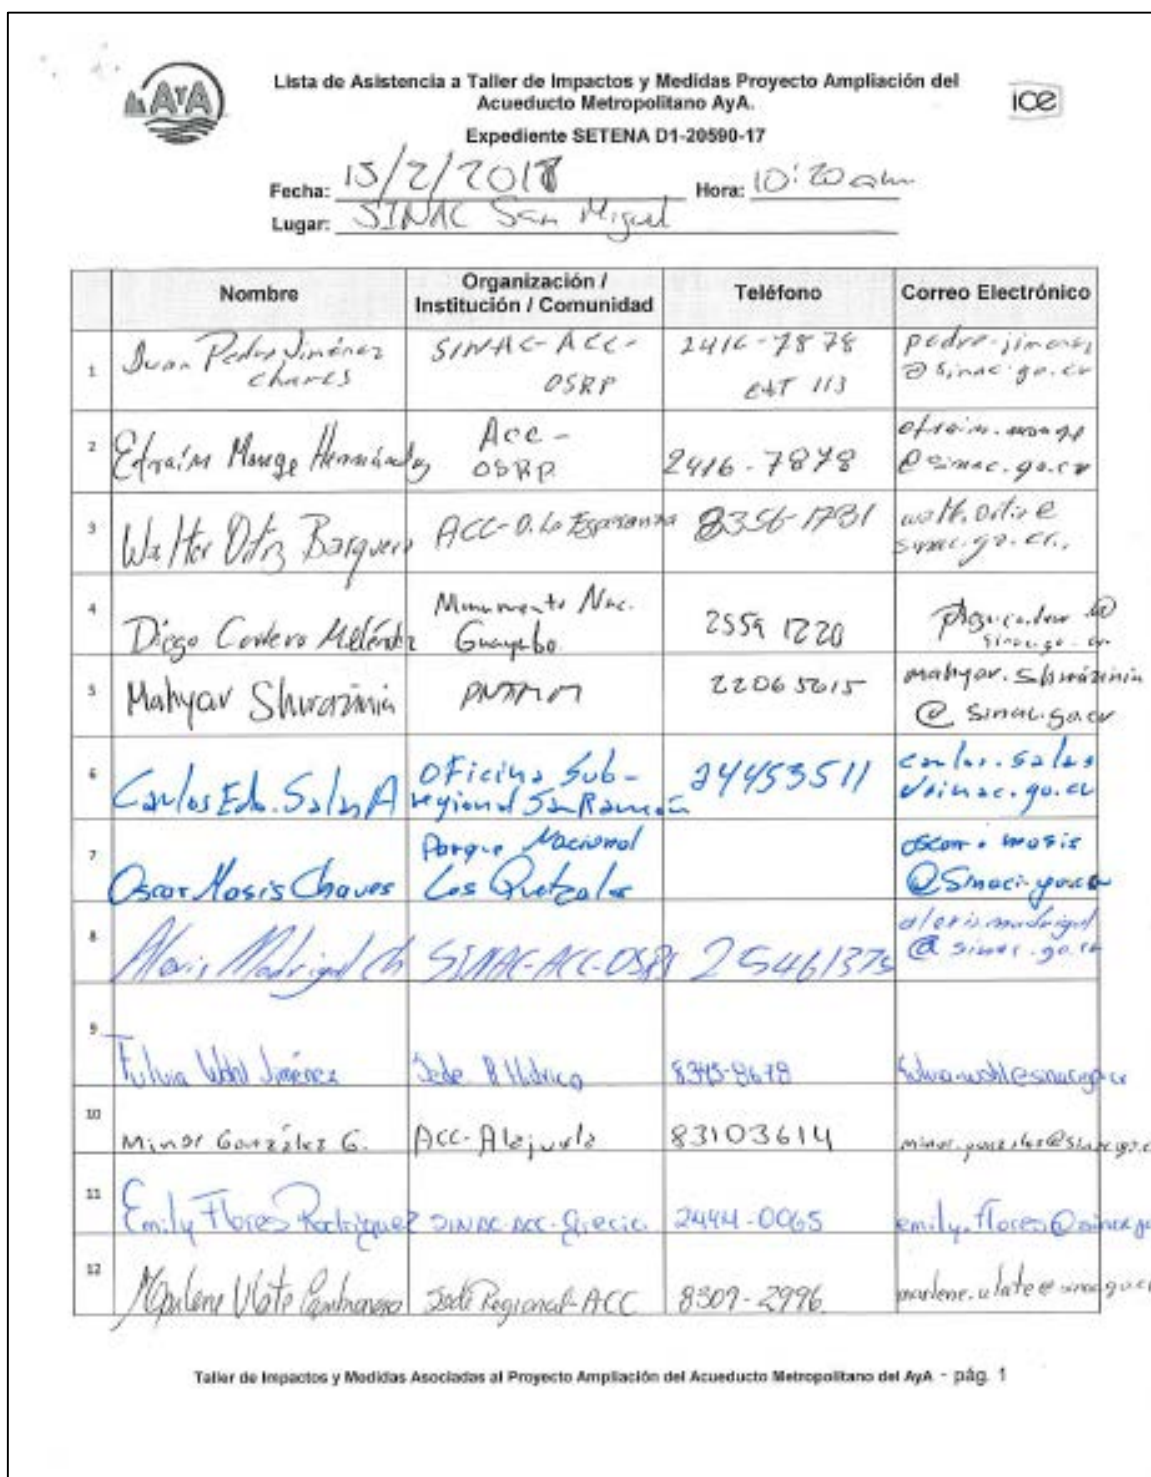 AyA
Lista de Asistencia a Taller de Impactos y Medidas Proyecto Ampliación del
Acueducto Metropolitano AyA.
ice
Expediente SETENA D1-20590-17
Fecha: 15/2/2018 Hora: 10:20 am
Lugar: SINAC San Miguel
Nombre
Organización /
Institución / Comunidad
Teléfono
Correo Electrónico
1
Juan Pedro Jiménez
SINAC-ACC-
OSRP
2416-7878
Ext 113
pedro.jimenez
@sinac.go.cr
2
Efraím Monge Hernández
ACC-
OSRP
2416-7878
efrain.monge
@sinac.go.cr
3
Walter Ortiz Barquero
ACC-O. La Esperanza
8356-1731
sinac.go.cr
4
Diego Cordero Meléndez
Monumento Nac.
Guayabo
2559 1220
sinac.go.cr
5
Mahyar Shirazinia
22065615
mahyar.shirazinia
@sinac.go.cr
6
Carlos Edo. Salas A
Oficina Sub-
regional San Ramón
24453511
carlos.salas
@sinac.go.cr
7
Oscar Masis Chaves
Parque Nacional
Los Quetzales
oscar.masis
@Sinac.go.cr
8
Alexis Madrigal Ch
SINAC-ACC-OSRP
25461375
alexis.madrigal
@sinac.go.cr
9
Fulvia Wohl Jiménez
Sede R Hídrico
8345-8678
fulvia.wohl@sinac.go.cr
10
Minor González G.
ACC-Alajuela
83103614
minor.gonzalez@sinac.go.c
11
Emily Flores Rodríguez
SINAC-ACC-Grecia
2444-0065
emily.flores@sinac.go
12
Marlene Ulate
Sede Regional-ACC
8309-2996
marlene.ulate@sinac.go.cr
Taller de Impactos y Medidas Asociadas al Proyecto Ampliación del Acueducto Metropolitano del AyA - pág. 1